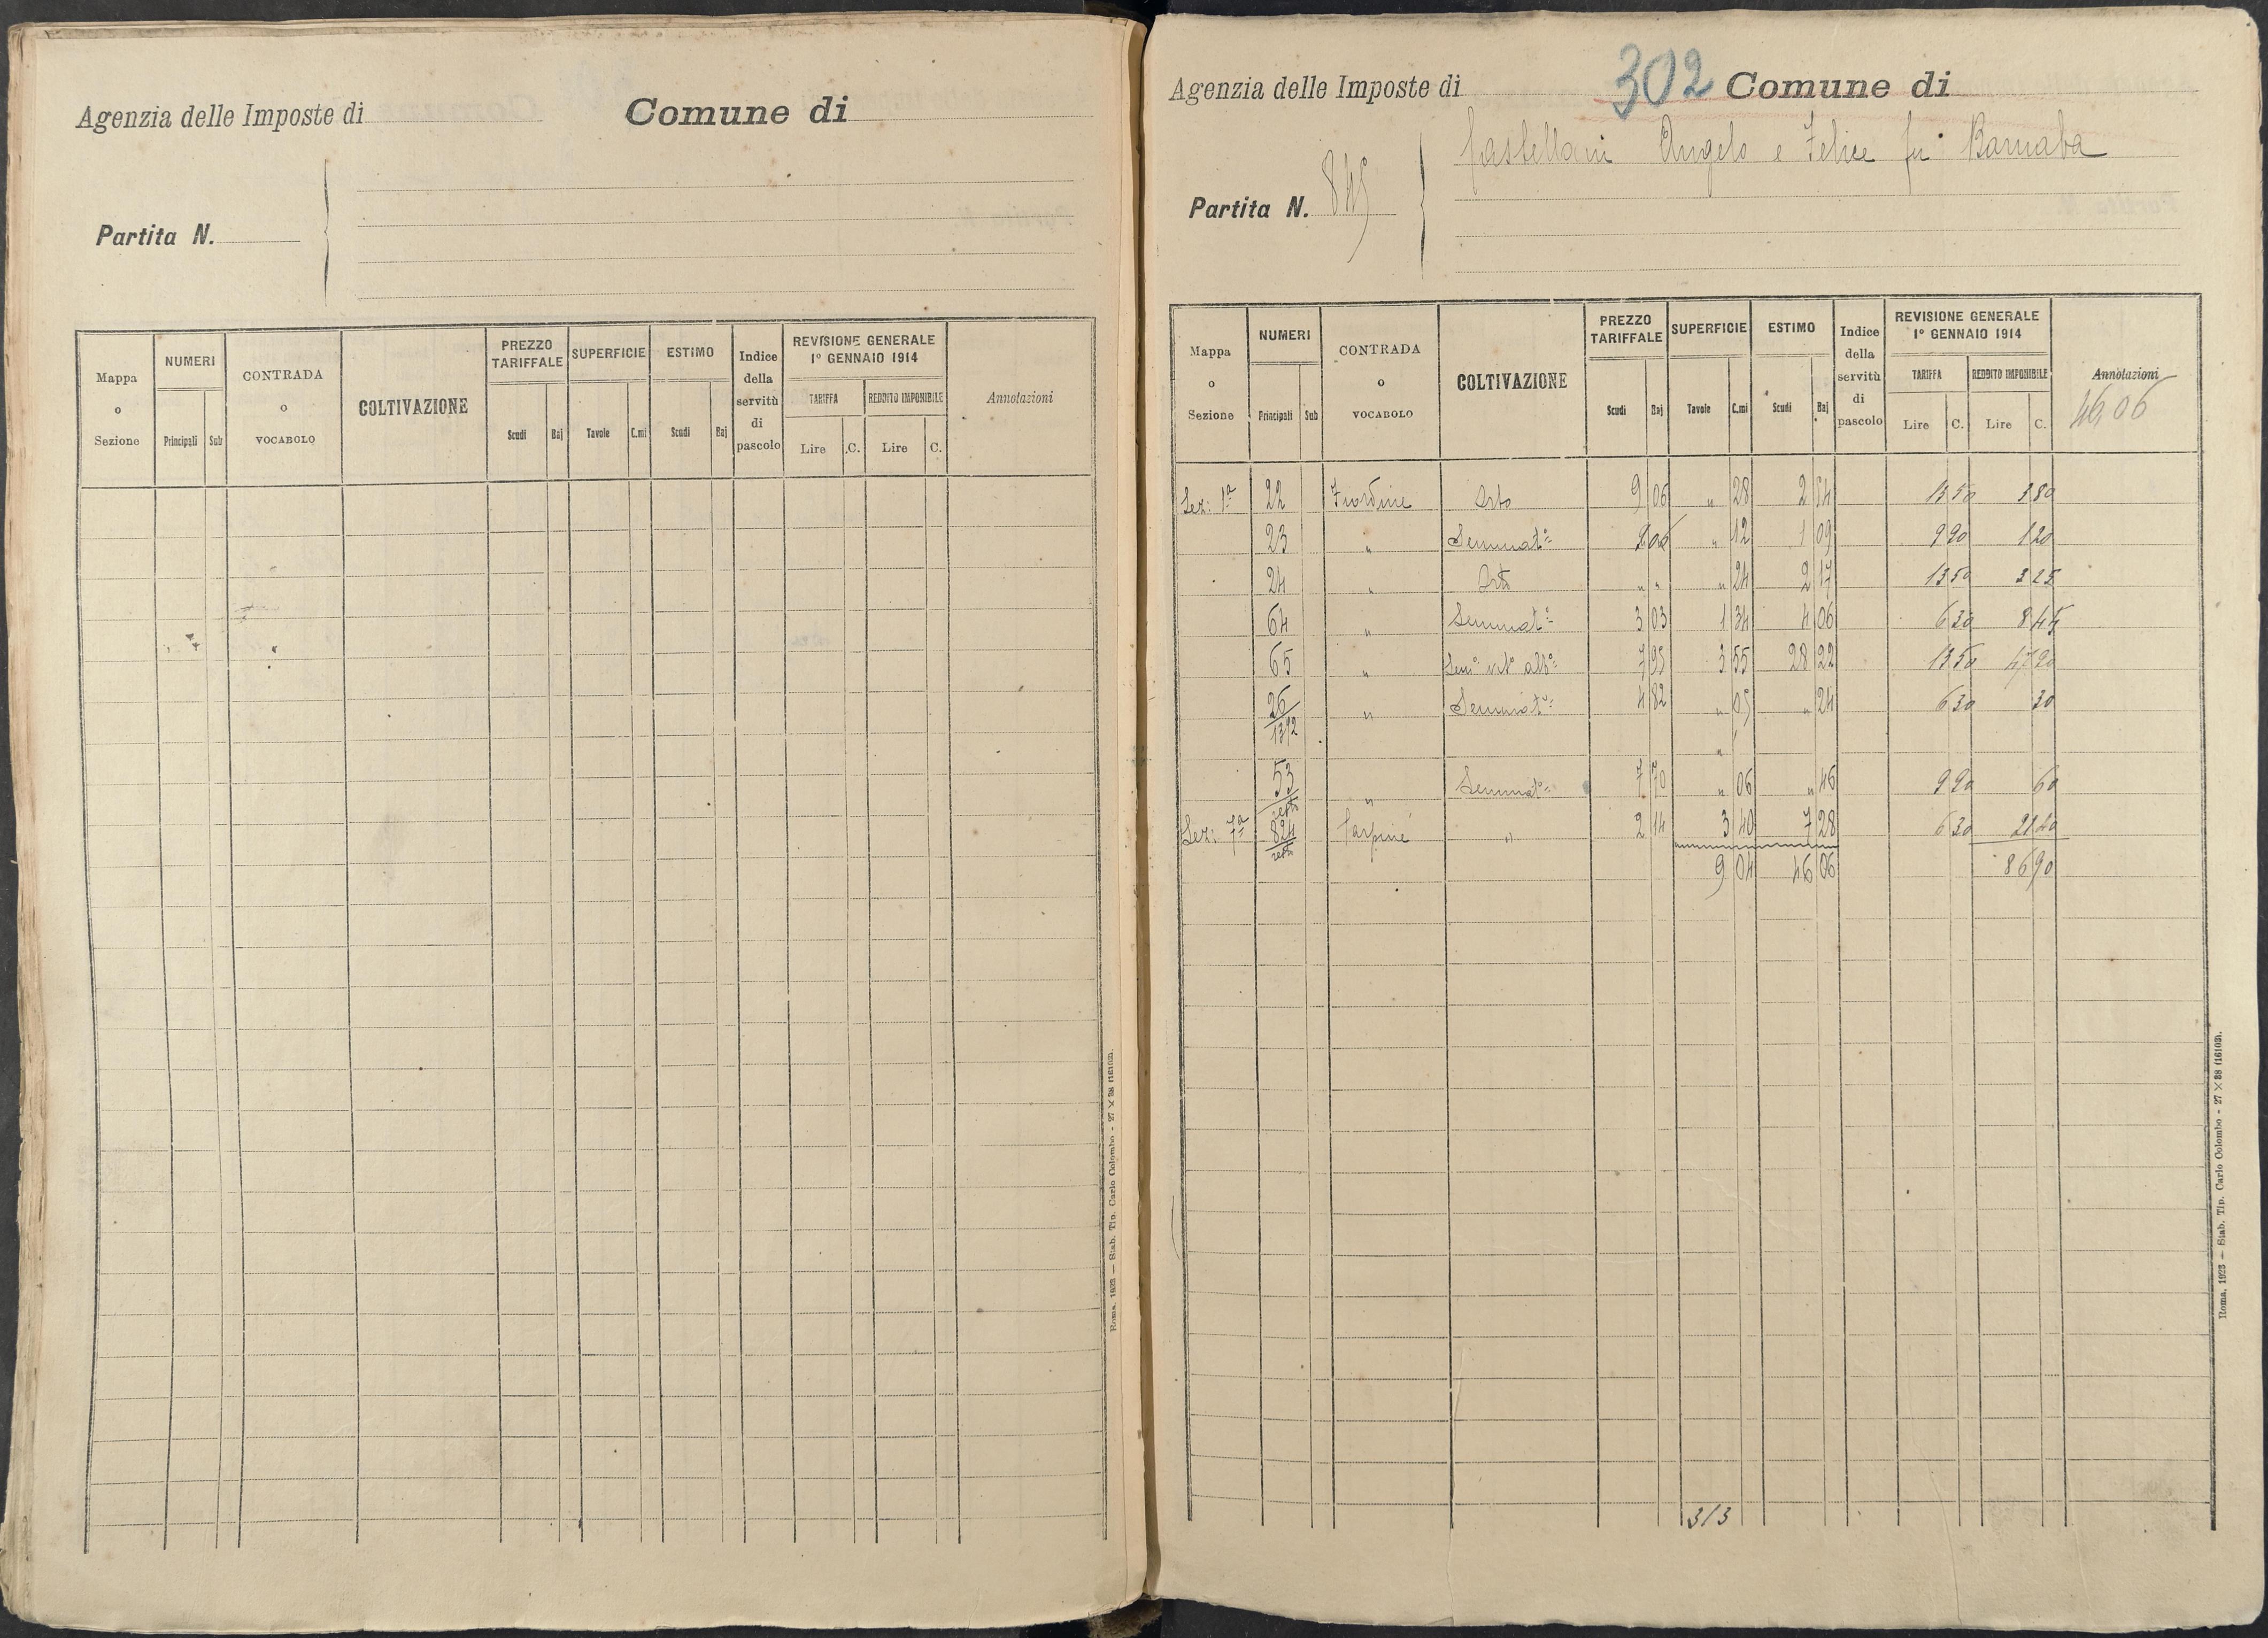 Agenzia delle Imposte di Comune di
Partita N.
Mappa o Sezione NUMERI CONTRADA o VOCABOLO COLTIVAZIONE PREZZO TARIFFALE SUPERFICIE ESTIMO Indice della servitù di pascolo REVISIONE GENERALE 1º GENNAIO 1914 Annotazioni
TARIFFA REDDITO IMPONIBILE
Principali Sub Scudi Baj Tavole C.mi Scudi Baj Lire C. Lire C.
Roma, 1923 — Stab. Tip. Carlo Colombo - 27 × 38 (16103).
302
Agenzia delle Imposte di Comune di
Castellani Angelo e Felice fu Barnaba
Partita N. 845
Mappa o Sezione NUMERI CONTRADA o VOCABOLO COLTIVAZIONE PREZZO TARIFFALE SUPERFICIE ESTIMO Indice della servitù di pascolo REVISIONE GENERALE 1º GENNAIO 1914 Annotazioni
TARIFFA REDDITO IMPONIBILE
Principali Sub Scudi Baj Tavole C.mi Scudi Baj Lire C. Lire C.
46,06
Sez: 1ª 22 Fiordine Orto 9 06 " 28 2 54 13 50 3 80
23 " Seminatº 9 06 " 12 1 09 9 90 1 20
24 " Orto " " " 24 2 17 13 50 3 25
64 " Seminatº 3 03 1 34 4 06 6 30 8 45
65 " Semº vitº albº 7 95 3 55 28 22 13 50 47 90
26/1392 " Seminatº 4 82 " 05 " 24 6 30 30
"
53/resto " Seminatº 7 70 " 06 " 46 9 90 60
Sez: 7ª 824/resto Carpine " 2 14 3 40 7 28 6 30 21 40
9 04 46 06 86 90
313
Roma, 1923 — Stab. Tip. Carlo Colombo - 27 × 38 (16103).